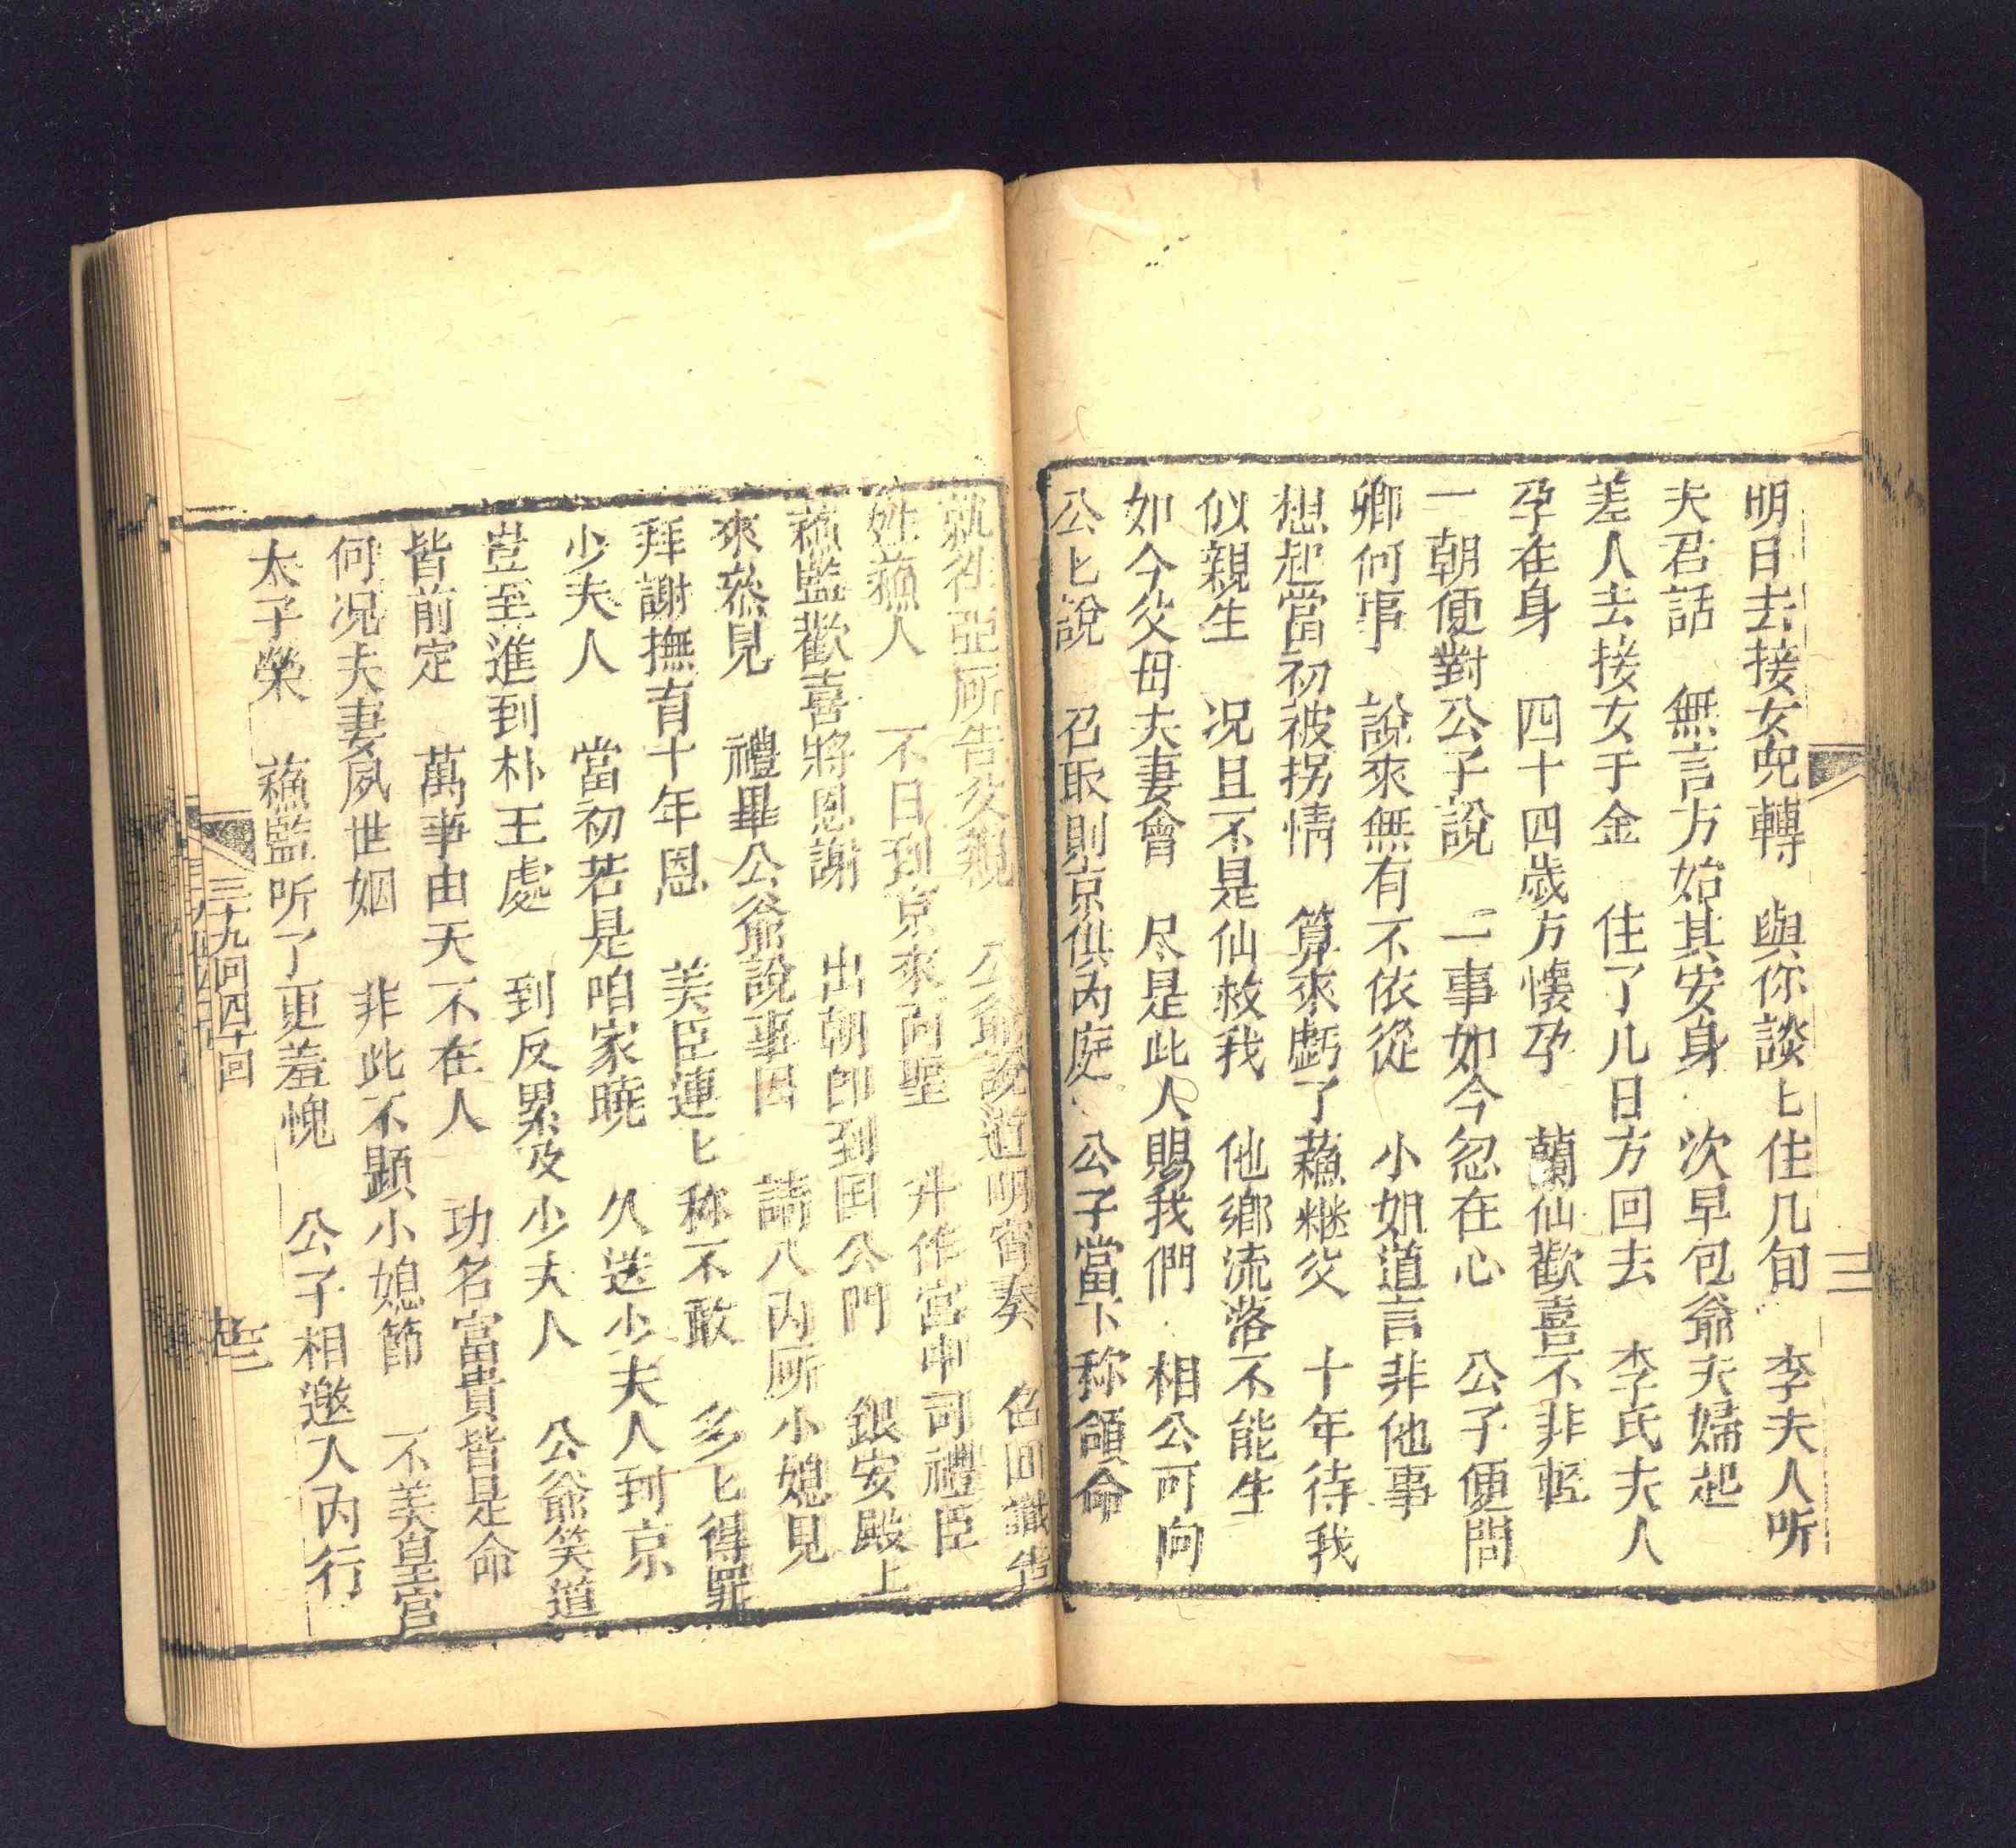 明日去接女皃轉　與你談〻住几旬　李夫人听
夫君話　無言方始其安身　次早包爺夫婦起
差人去接女于金　住了几日方回去　李氏夫人
孕在身　四十四歲方懐孕　蘭仙歡喜不非輕
一朝便對公子說　二事如今忽在心　公子便問
卿何事　說來無有不依從　小姐道言非他事
想起當初被拐情　算來虧了蘓継父　十年待我
似親生　况且不是仙救我　他鄉流落不能生
如今父母夫妻會　尽是此人賜我們　相公可向
公〻說　召取則京供内庭　公子當下称領命
就往亞廝告父親　公爺說道明宵奏　召回議告
姓蘓人　不日到京來面聖　升作宮中司禮臣
蘓監歡喜將恩謝　出朝即到国公門　銀安殿上
來叅見　禮畢公爺說事因　請入内廝小媳見
拜謝撫育十年恩　美臣連〻称不敢　多〻得罪
少夫人　當初若是咱家曉　久送少夫人到京
豈至進到朴王處　到反累及少夫人　公爺笑道
皆前定　萬事由天不在人　功名富貴皆是命
何况夫妻夙世姻　非此不顕小媳節　不美皇宫
太子榮　蘓監听了更羞愧　公子相邀入内行
三九回四十回